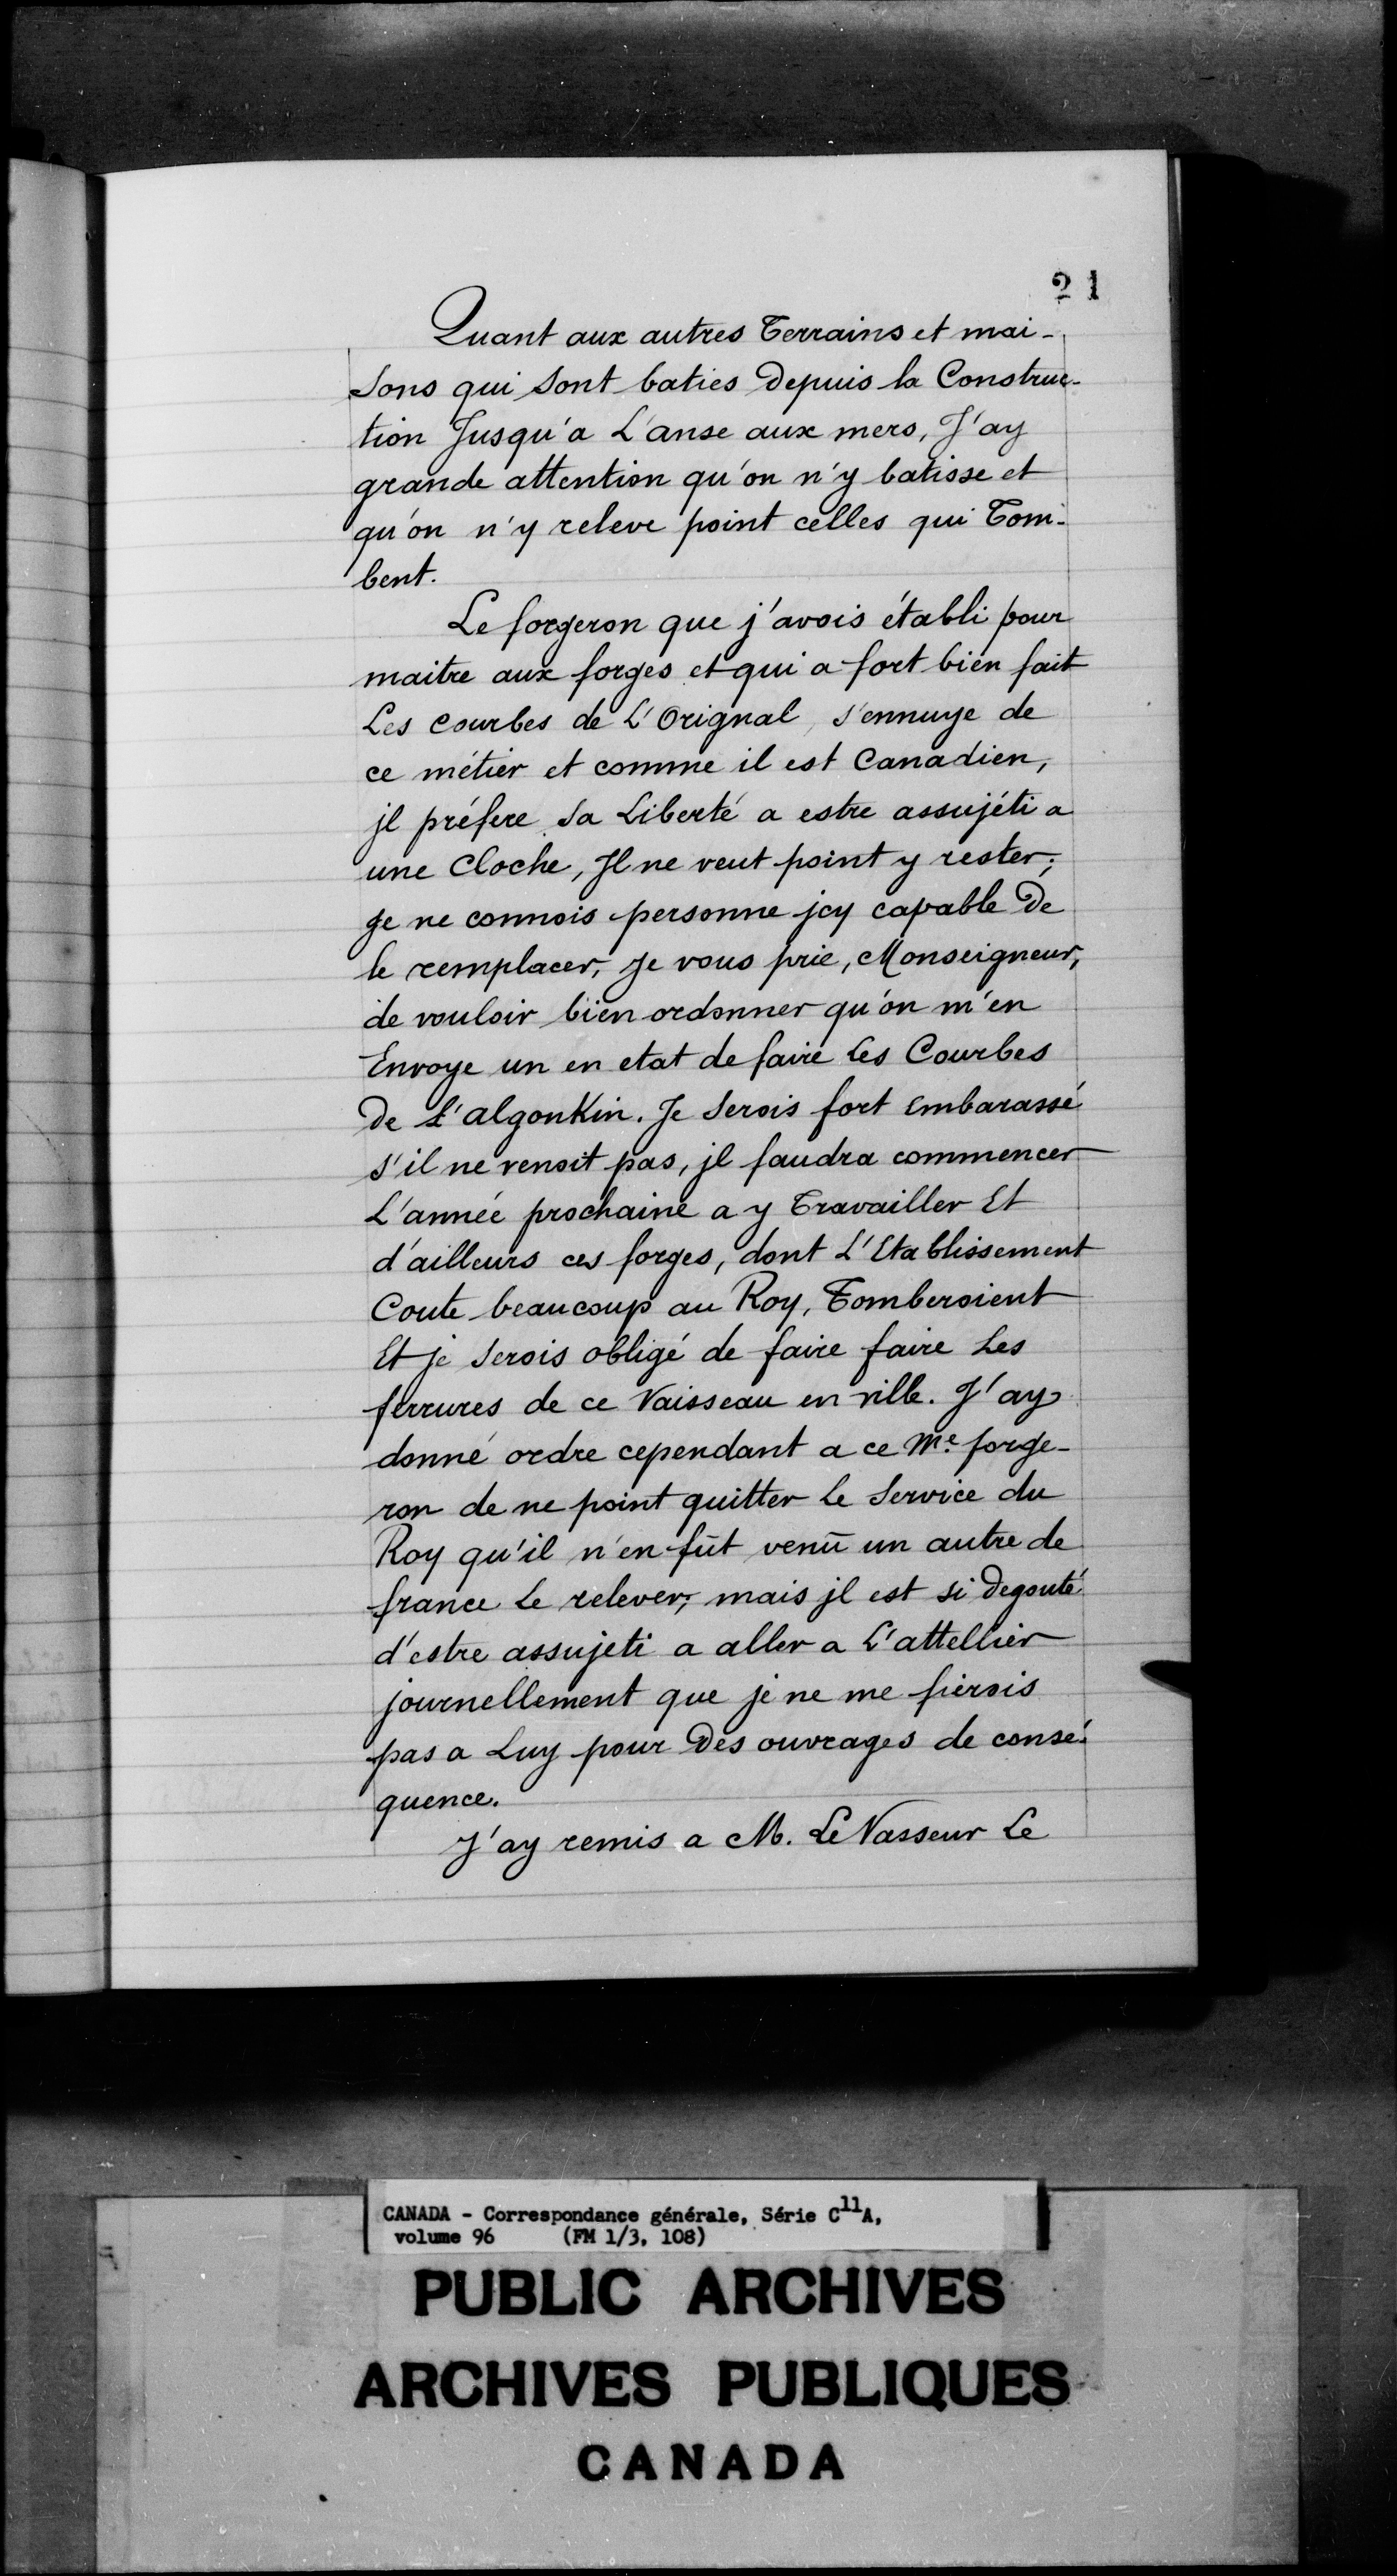 21
Quant aux autres Terrains et mai-
sons qui sont baties Depuis la Construc-
tion Jusqu'a L'anse aux mers, J'ay
grande attention qu'on n'y batisse et
qu'on n'y releve point celles qui Tom-
bent.
Le forgeron que j'avois établi pour
maitre aux forges et qui a fort bien fait
Les courbes de L'Orignal, s'ennuye de
ce métier et comme il est Canadien,
jl préfere sa Liberté a estre assujéti a
une Cloche, Jl ne veut point y rester;
je ne connois personne jcy capable De
le remplacer, je vous prie, Monseigneur,
de vouloir bien ordonner qu'on m'en
Envoye un en etat de faire Les Courbes
De L'algonKin. Je serois fort Embarassé
s'il ne venoit pas, jl faudra commencer
L'année prochaine a y Travailler Et
d'ailleurs ces forges, dont L'Etablissement
Coute beaucoup au Roy, Tomberoient
Et je serois obligé de faire faire Les
ferrures de ce Vaisseau en ville. J'ay
donné ordre cependant a ce Me. forge-
ron de ne point quitter Le Service du
Roy qu'il n'en fût venû un autre de
france Le relever; mais jl est si Degouté
d'estre assujeti a aller a L'attellier
journellement que je ne me fierois
pas a Luy pour Des ouvrages de consé-
quence.
J'ay remis a M. Le Vasseur Le
CANADA - Correspondance générale, Série C11A,
volume 96 (FM 1/3, 108)
PUBLIC ARCHIVES
ARCHIVES PUBLIQUES
CANADA